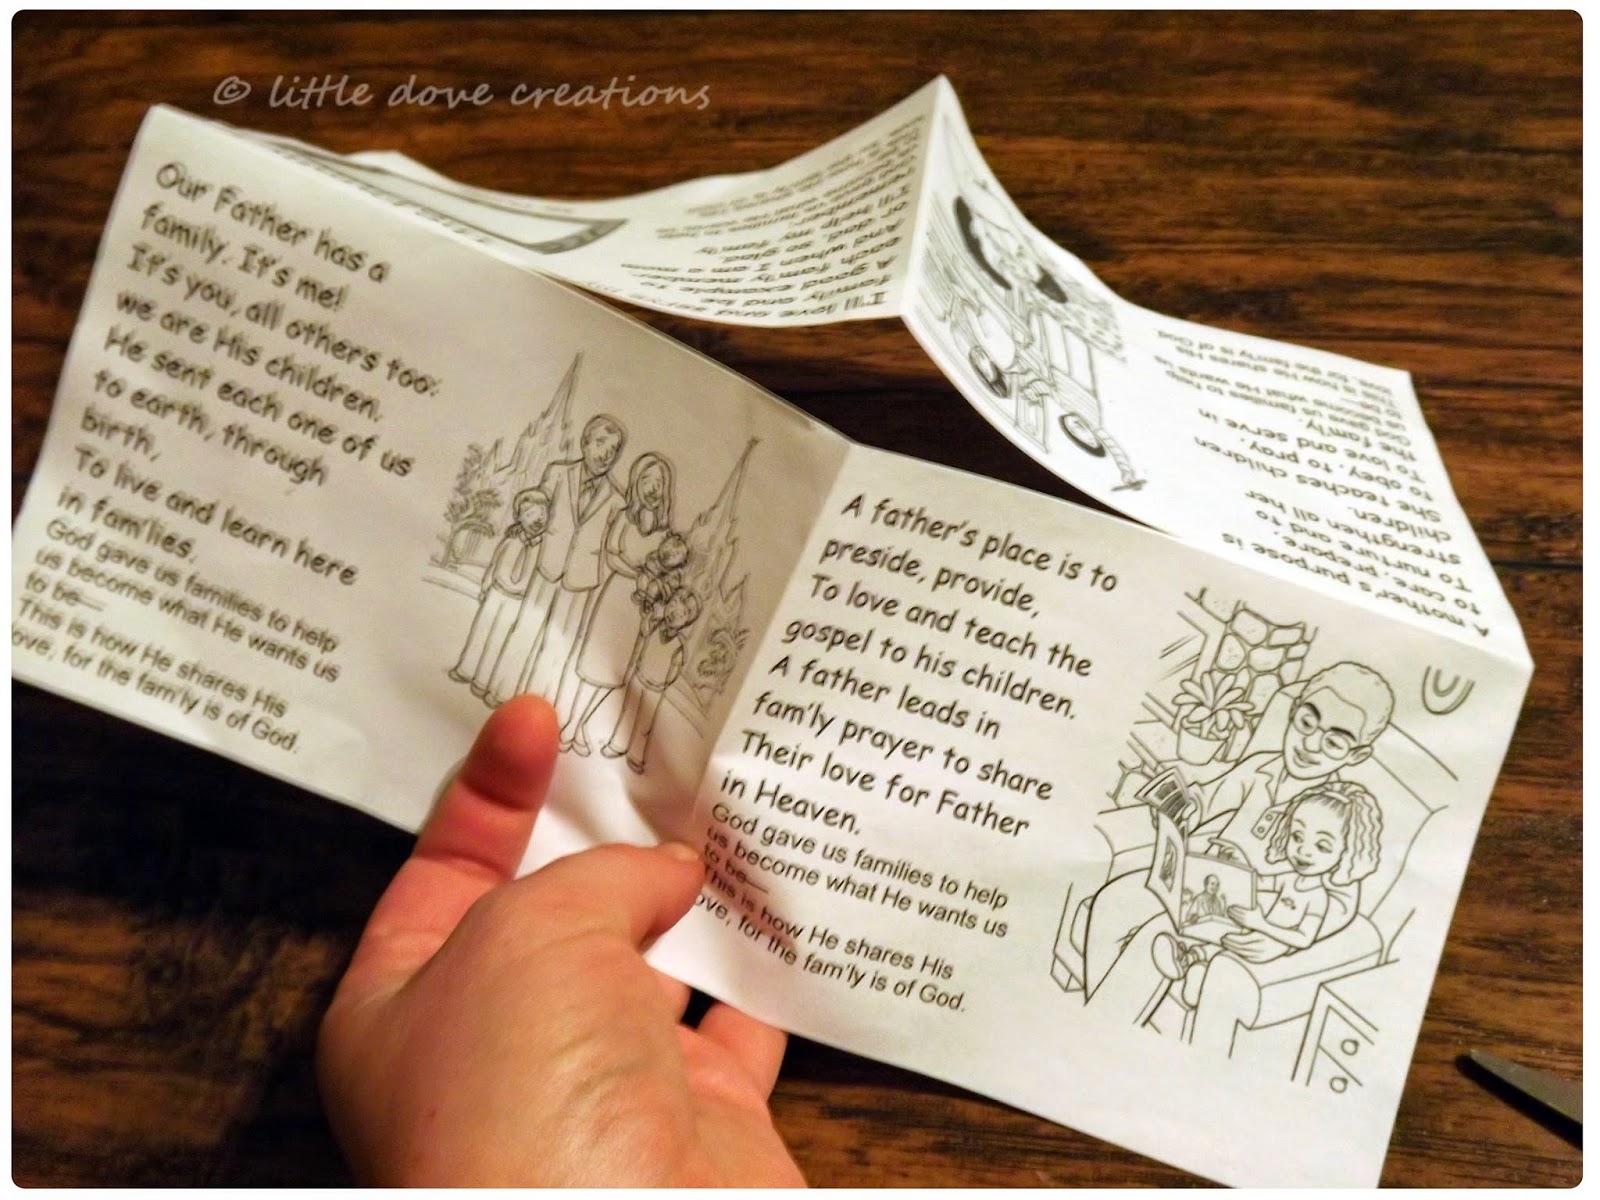 © little dove creations
Our Father has a
family. It's me!
It's you, all others too:
we are His children.
He sent each one of us
to earth, through
birth,
To live and learn here
in fam'lies.
God gave us families to help
us become what He wants us
to be—
This is how He shares His
love, for the fam'ly is of God.
A father's place is to
preside, provide,
To love and teach the
gospel to his children.
A father leads in
fam'ly prayer to share
Their love for Father
in Heaven.
God gave us families to help
us become what He wants us
to be—
This is how He shares His
love, for the fam'ly is of God.
A mother's purpose is
to care, prepare,
To nurture and to
strengthen all her
children.
She teaches children
to obey, to pray,
To love and serve in
the family.
God gave us families to help
us become what He wants us
to be—
This is how He shares His
love, for the fam'ly is of God.
I'll love and serve my
family and be
A good example to
each family member
And when I am a mom
or dad, so glad,
I'll help my family